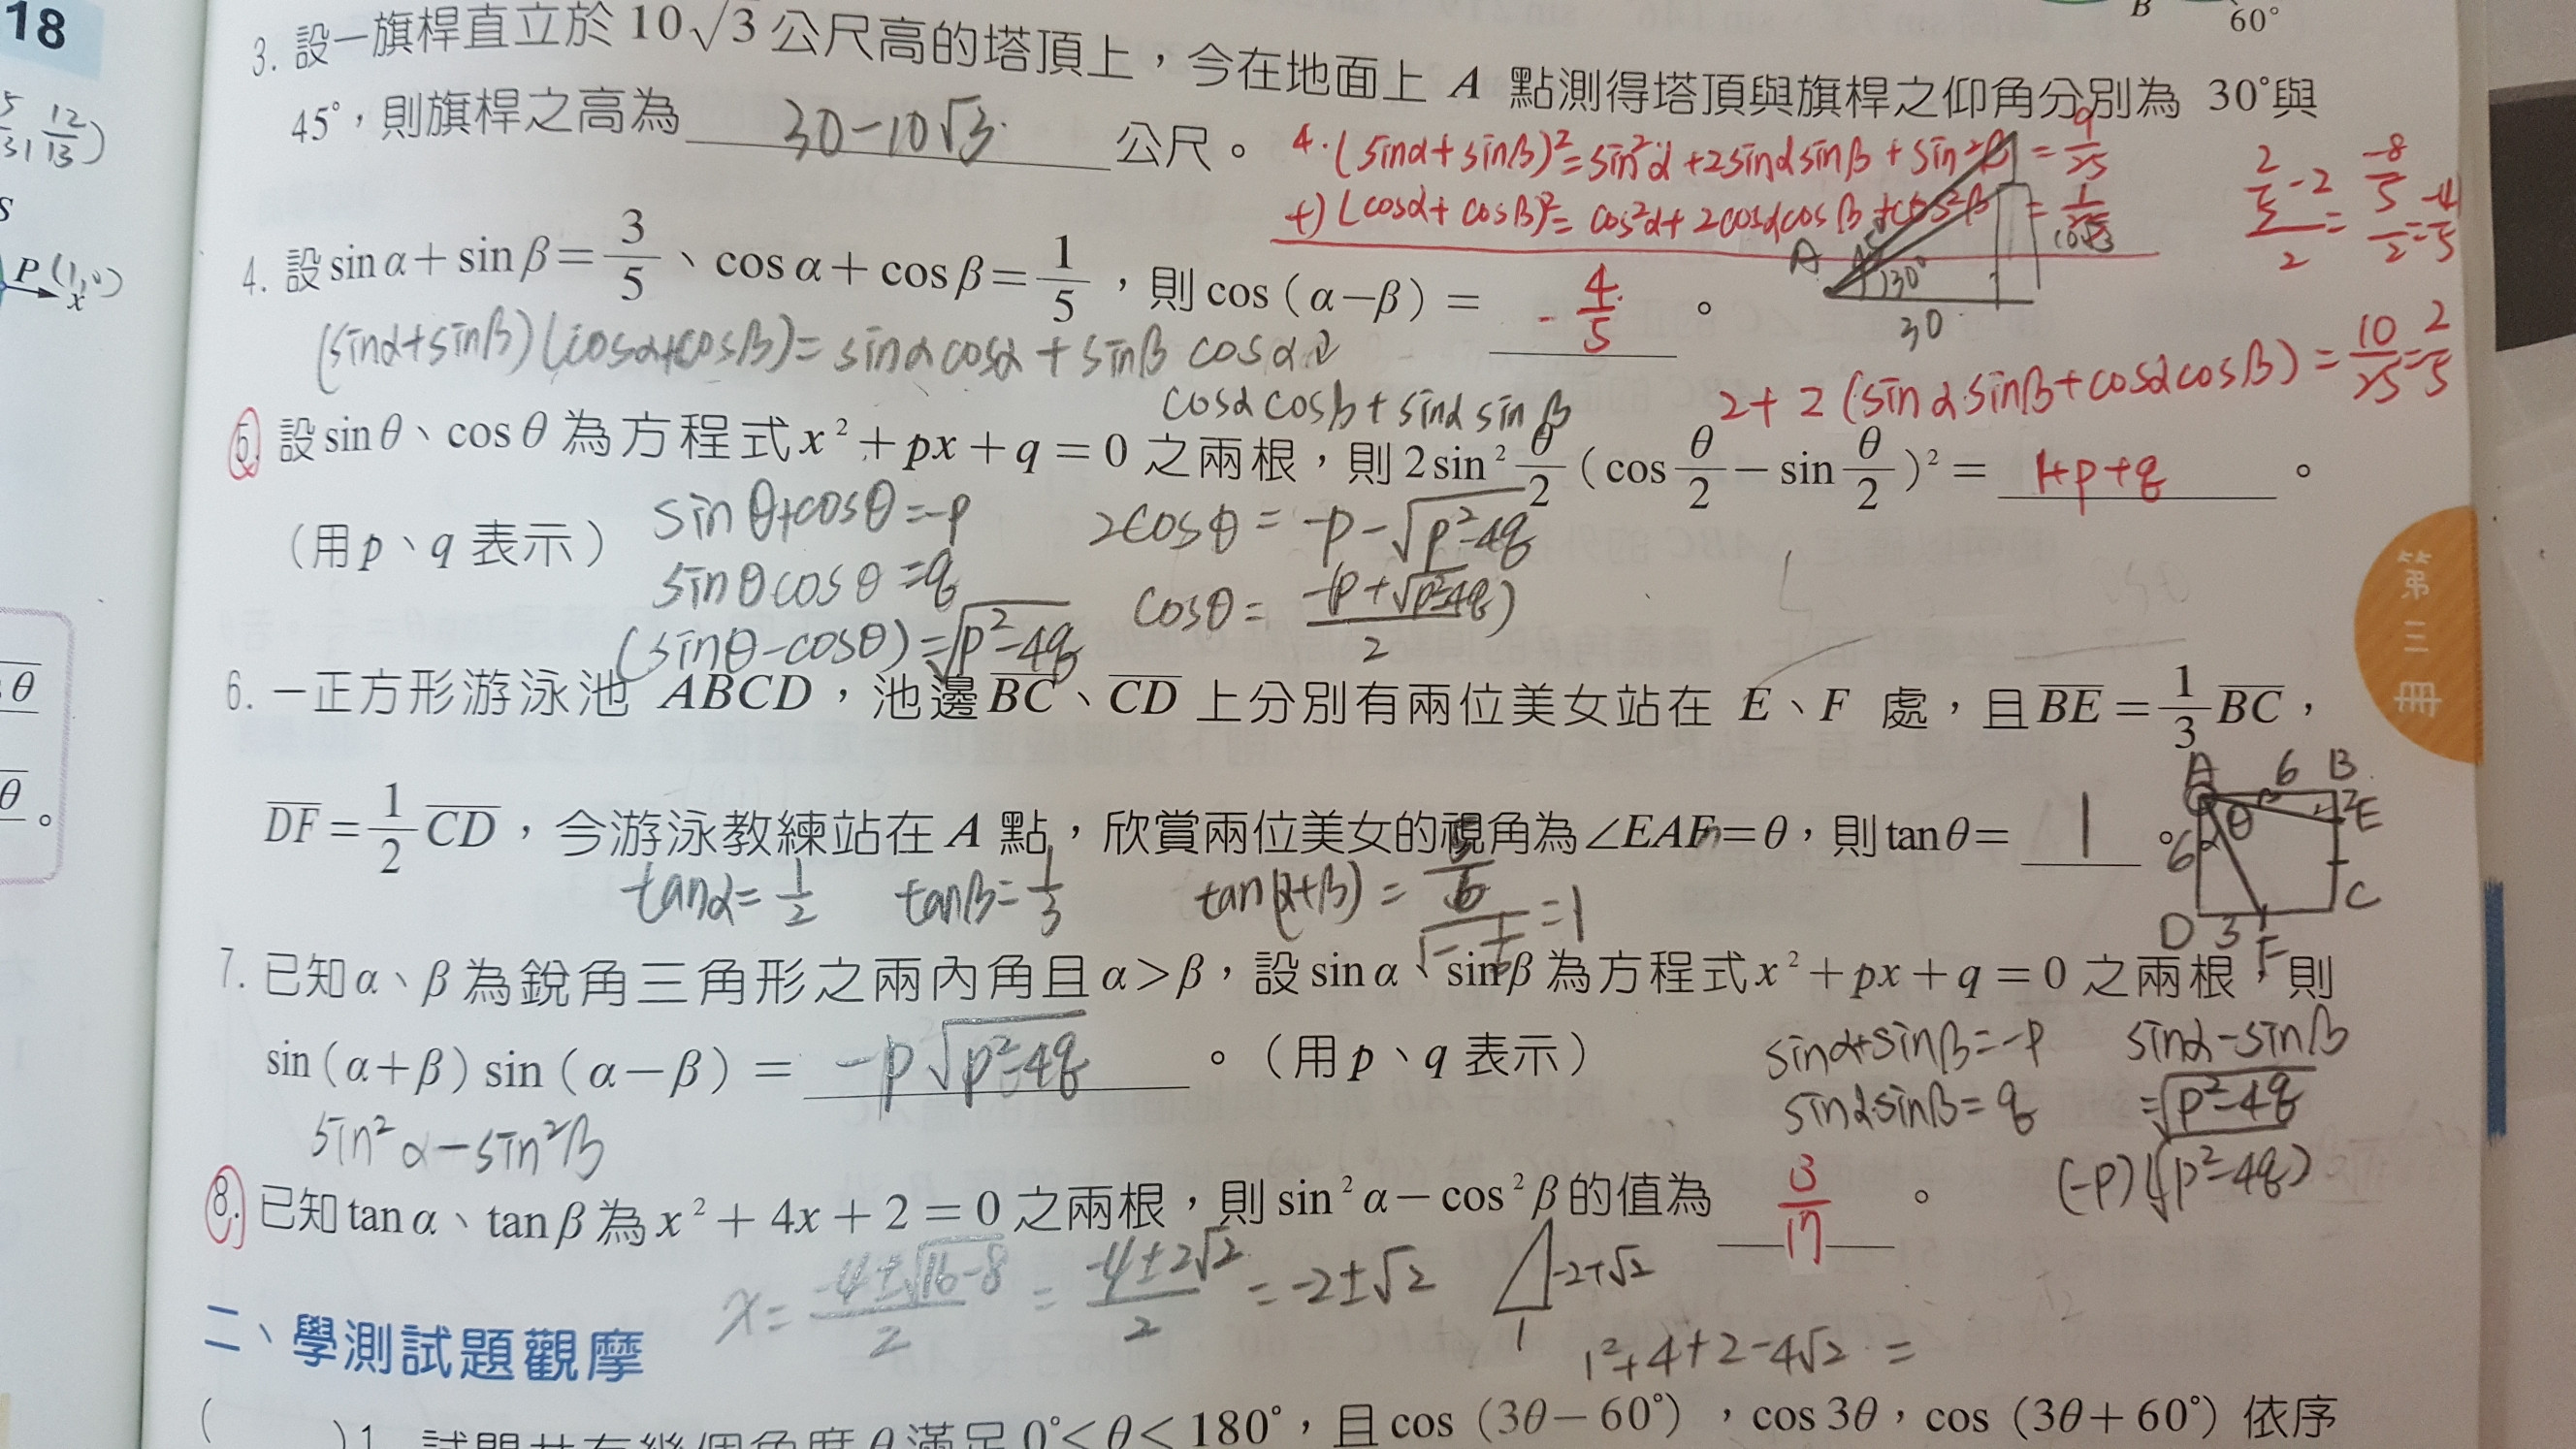 18
3. 設一旗桿直立於 10√3 公尺高的塔頂上，今在地面上 A 點測得塔頂與旗桿之仰角分別為 30°與
45°，則旗桿之高為 30-10√3 公尺。
4. (sinα+sinβ)²=sin²α+2sinαsinβ+sin²β = 9/25
+) (cosα+cosβ)²=cos²α+2cosαcosβ+cos²β = 1/25
(2/5-2)/2 = (-8/5)/2 = -4/5
A 45° 30° 10√3
30
4. 設 sin α + sin β = 3/5、cos α + cos β = 1/5，則 cos（α－β）= -4/5 。
(sinα+sinβ)(cosα+cosβ)=sinαcosα+sinβcosα
cosαcosβ+sinαsinβ
2+2(sinαsinβ+cosαcosβ)=10/25=2/5
5. 設 sin θ、cos θ 為方程式 x²+px+q=0 之兩根，則 2 sin² θ/2 (cos θ/2 − sin θ/2)² = 1+p+q 。
（用 p、q 表示）
sinθ+cosθ=-p
sinθcosθ=q
(sinθ-cosθ)=√(p²-4q)
2cosθ=-p-√(p²-4q)
cosθ=(-p+√(p²-4q))/2
6. 一正方形游泳池 ABCD，池邊 BC、CD 上分別有兩位美女站在 E、F 處，且 BE=1/3 BC，
DF=1/2 CD，今游泳教練站在 A 點，欣賞兩位美女的視角為∠EAF=θ，則 tan θ= 1 。
A 6 B
2 E
6 θ
C
D 3 F
tanα=1/2 tanβ=1/3 tan(α+β)=(5/6)/(1-1/6)=1
7. 已知 α、β 為銳角三角形之兩內角且 α>β，設 sin α、sin β 為方程式 x²+px+q=0 之兩根，則
sin（α+β）sin（α－β）= -p√(p²-4q) 。（用 p、q 表示）
sin²α-sin²β
sinα+sinβ=-p
sinαsinβ=q
sinα-sinβ
=√(p²-4q)
(-p)(√(p²-4q))
8. 已知 tan α、tan β 為 x²+4x+2=0 之兩根，則 sin² α－cos² β 的值為 3/17 。
x=(-4±√(16-8))/2=(-4±2√2)/2=-2±√2
-2+√2
1
1²+4+2-4√2=
二、學測試題觀摩
( )1. 試問共有幾個角度 θ 滿足 0°<θ<180°，且 cos（3θ－60°），cos 3θ，cos（3θ+60°）依序
第三冊
B
60°
12/13)
P(1,0)
x
S
θ
θ 。